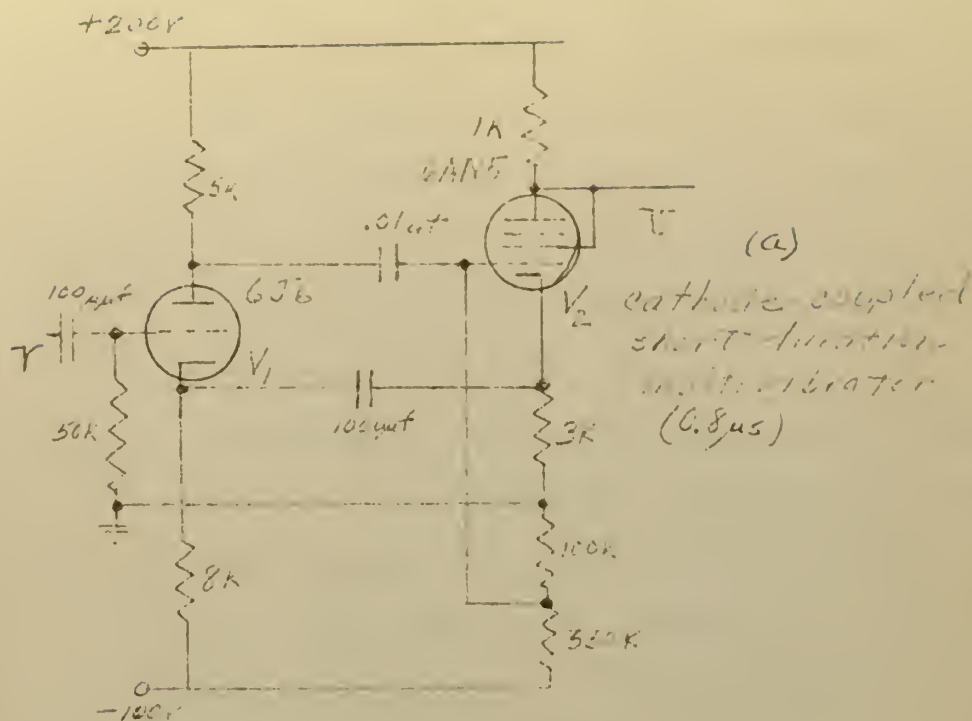 +200v
1K
5K
.01μf
(a)
100μμf
6J6
V2
cathode-coupled
short duration
multivibrator
(0.8μs)
V1
50K
100μμf
3K
100K
8K
-100v